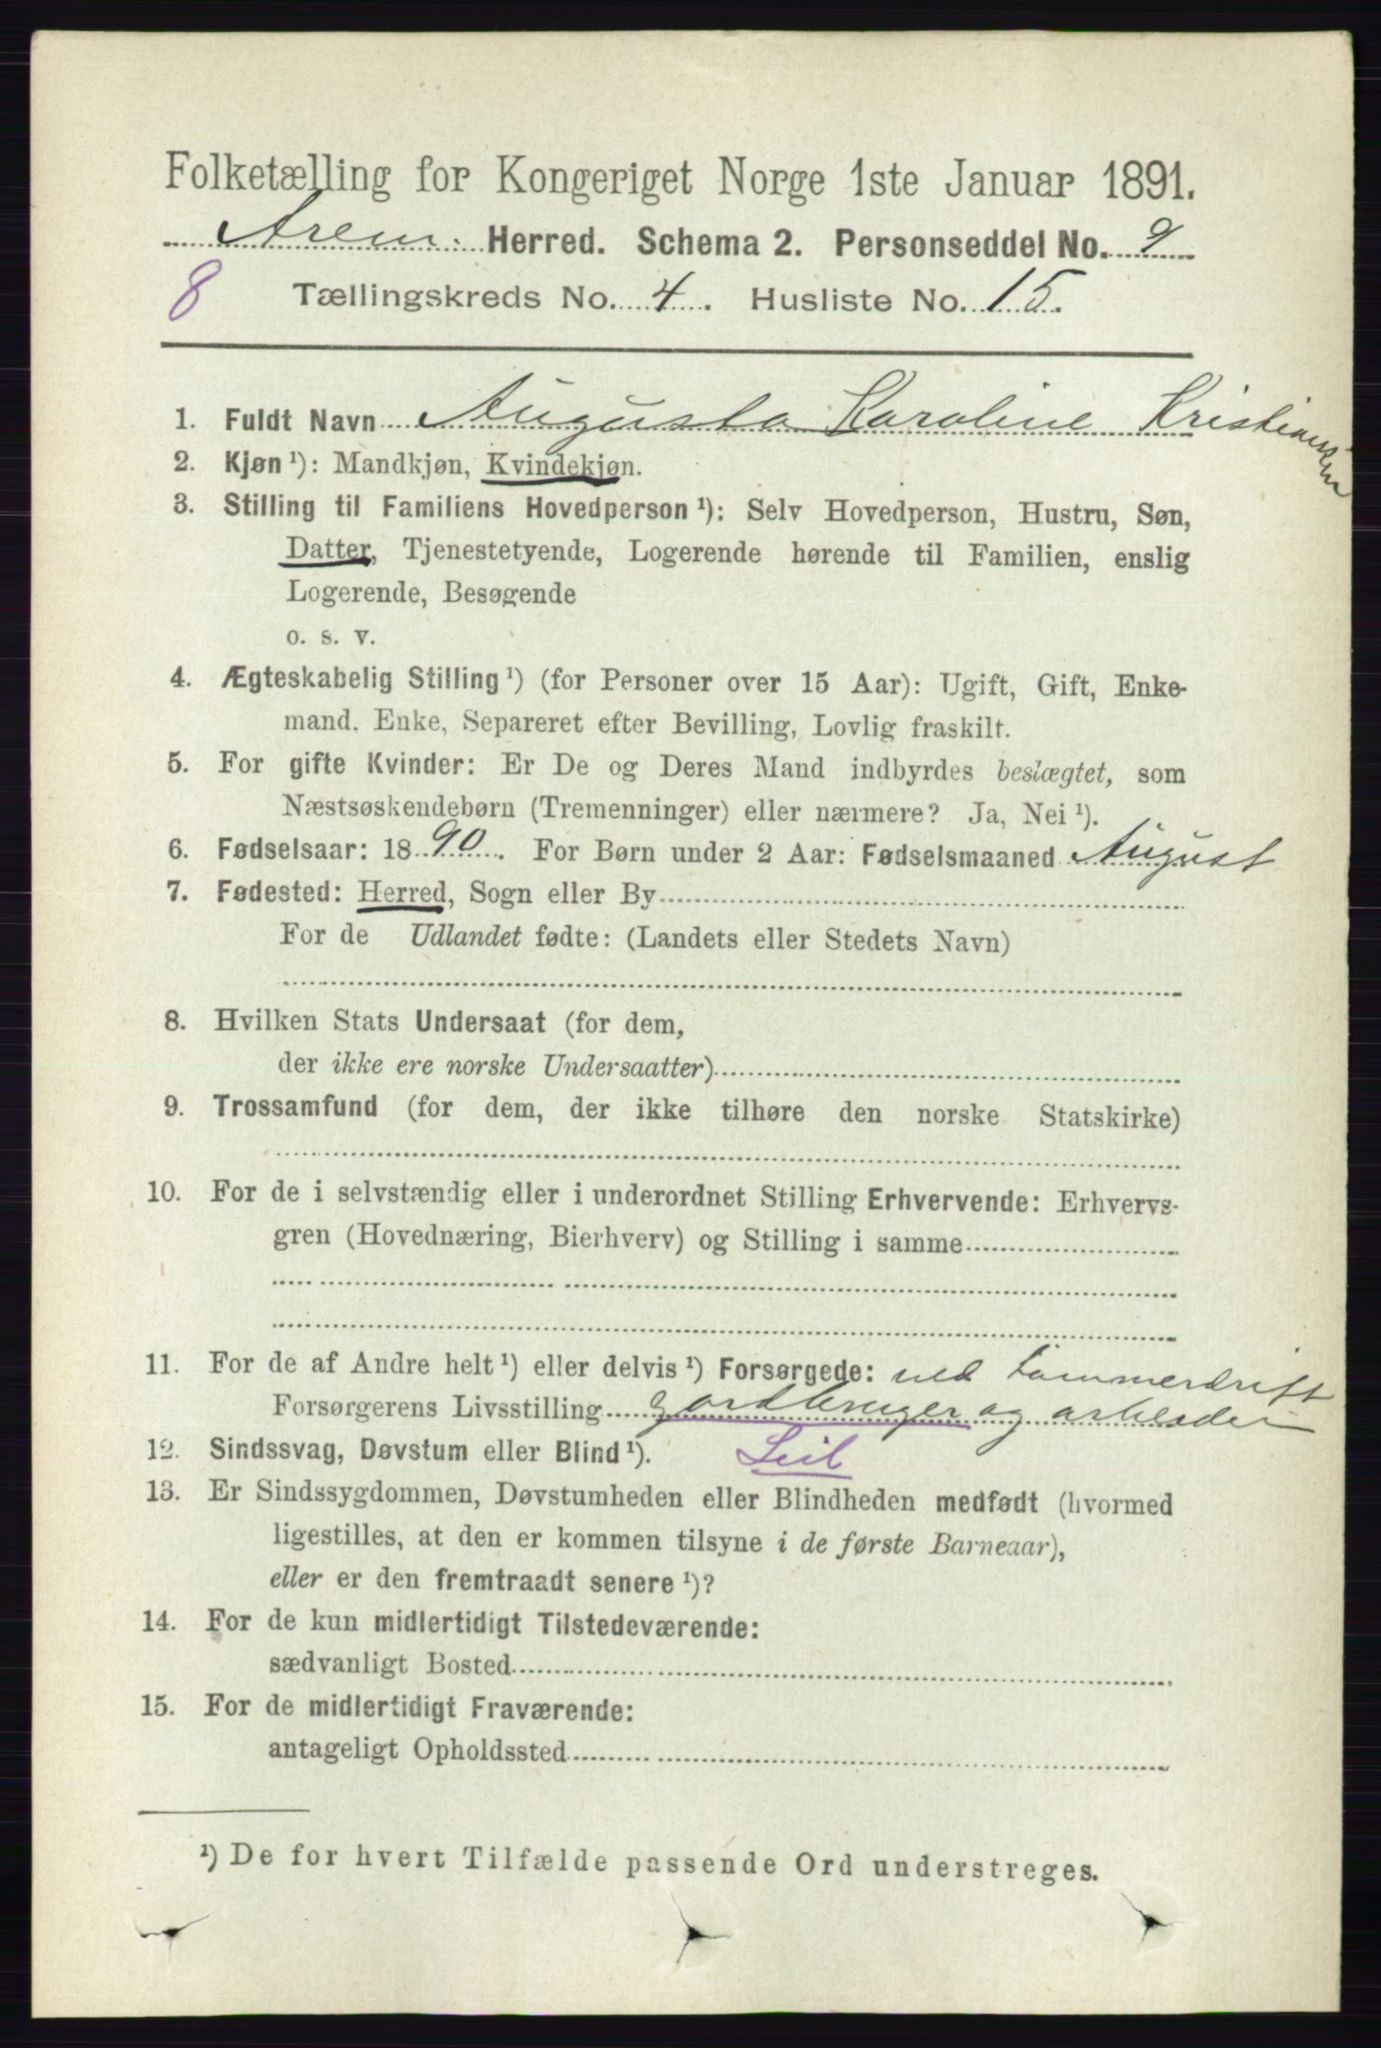 Folketælling for Kongeriget Norge 1ste Januar 1891.
Arem. Herred. Schema 2. Personseddel No. 9
8 Tællingskreds No. 4. Husliste No. 15.
1. Fuldt Navn Augusta Karoline Kristiansen
2. Kjøn ¹): Mandkjøn, Kvindekjøn.
3. Stilling til Familiens Hovedperson ¹): Selv Hovedperson, Hustru, Søn,
Datter, Tjenestetyende, Logerende hørende til Familien, enslig
Logerende, Besøgende
o. s. v.
4. Ægteskabelig Stilling ¹) (for Personer over 15 Aar): Ugift, Gift, Enke-
mand. Enke, Separeret efter Bevilling, Lovlig fraskilt.
5. For gifte Kvinder: Er De og Deres Mand indbyrdes beslægtet, som
Næstsøskendebørn (Tremenninger) eller nærmere? Ja, Nei ¹).
6. Fødselsaar: 18 90. For Børn under 2 Aar: Fødselsmaaned August
7. Fødested: Herred, Sogn eller By
For de Udlandet fødte: (Landets eller Stedets Navn)
8. Hvilken Stats Undersaat (for dem,
der ikke ere norske Undersaatter)
9. Trossamfund (for dem, der ikke tilhøre den norske Statskirke)
10. For de i selvstændig eller i underordnet Stilling Erhvervende: Erhvervs-
gren (Hovednæring, Bierhverv) og Stilling i samme
11. For de af Andre helt ¹) eller delvis ¹) Forsørgede: ved tømmerdrift
Forsørgerens Livsstilling gordbruger og arbeider
12. Sindssvag, Døvstum eller Blind ¹). Leil
13. Er Sindssygdommen, Døvstumheden eller Blindheden medfødt (hvormed
ligestilles, at den er kommen tilsyne i de første Barneaar),
eller er den fremtraadt senere ¹)?
14. For de kun midlertidigt Tilstedeværende:
sædvanligt Bosted
15. For de midlertidigt Fraværende:
antageligt Opholdssted
¹) De for hvert Tilfælde passende Ord understreges.